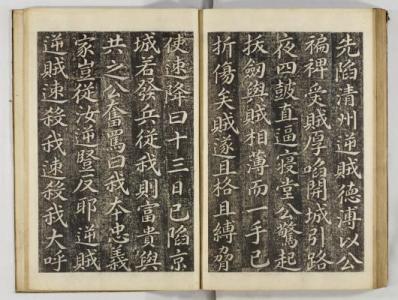 先陷清州逆賊德溥以公
褊裨受賊厚啗開城引路
夜四鼓直逼寝堂公驚起
拔劔與賊相薄而一手已
折傷矣賊遂且格且縛脅
使速降曰十三日已陷京
城若發兵從我則富貴與
共之公奮罵曰我本忠義
家豈從汝逆竪反耶逆賊
逆賊速殺我速殺我大呼